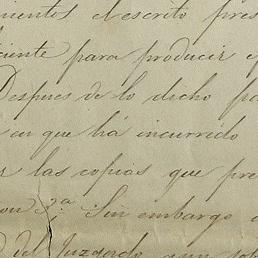 mientos el escrito pres
ciente para producir e
Despues de lo dicho pa
en que há incurrido
las copias que pre
3.a Sin embargo
del Juzgado aun sob